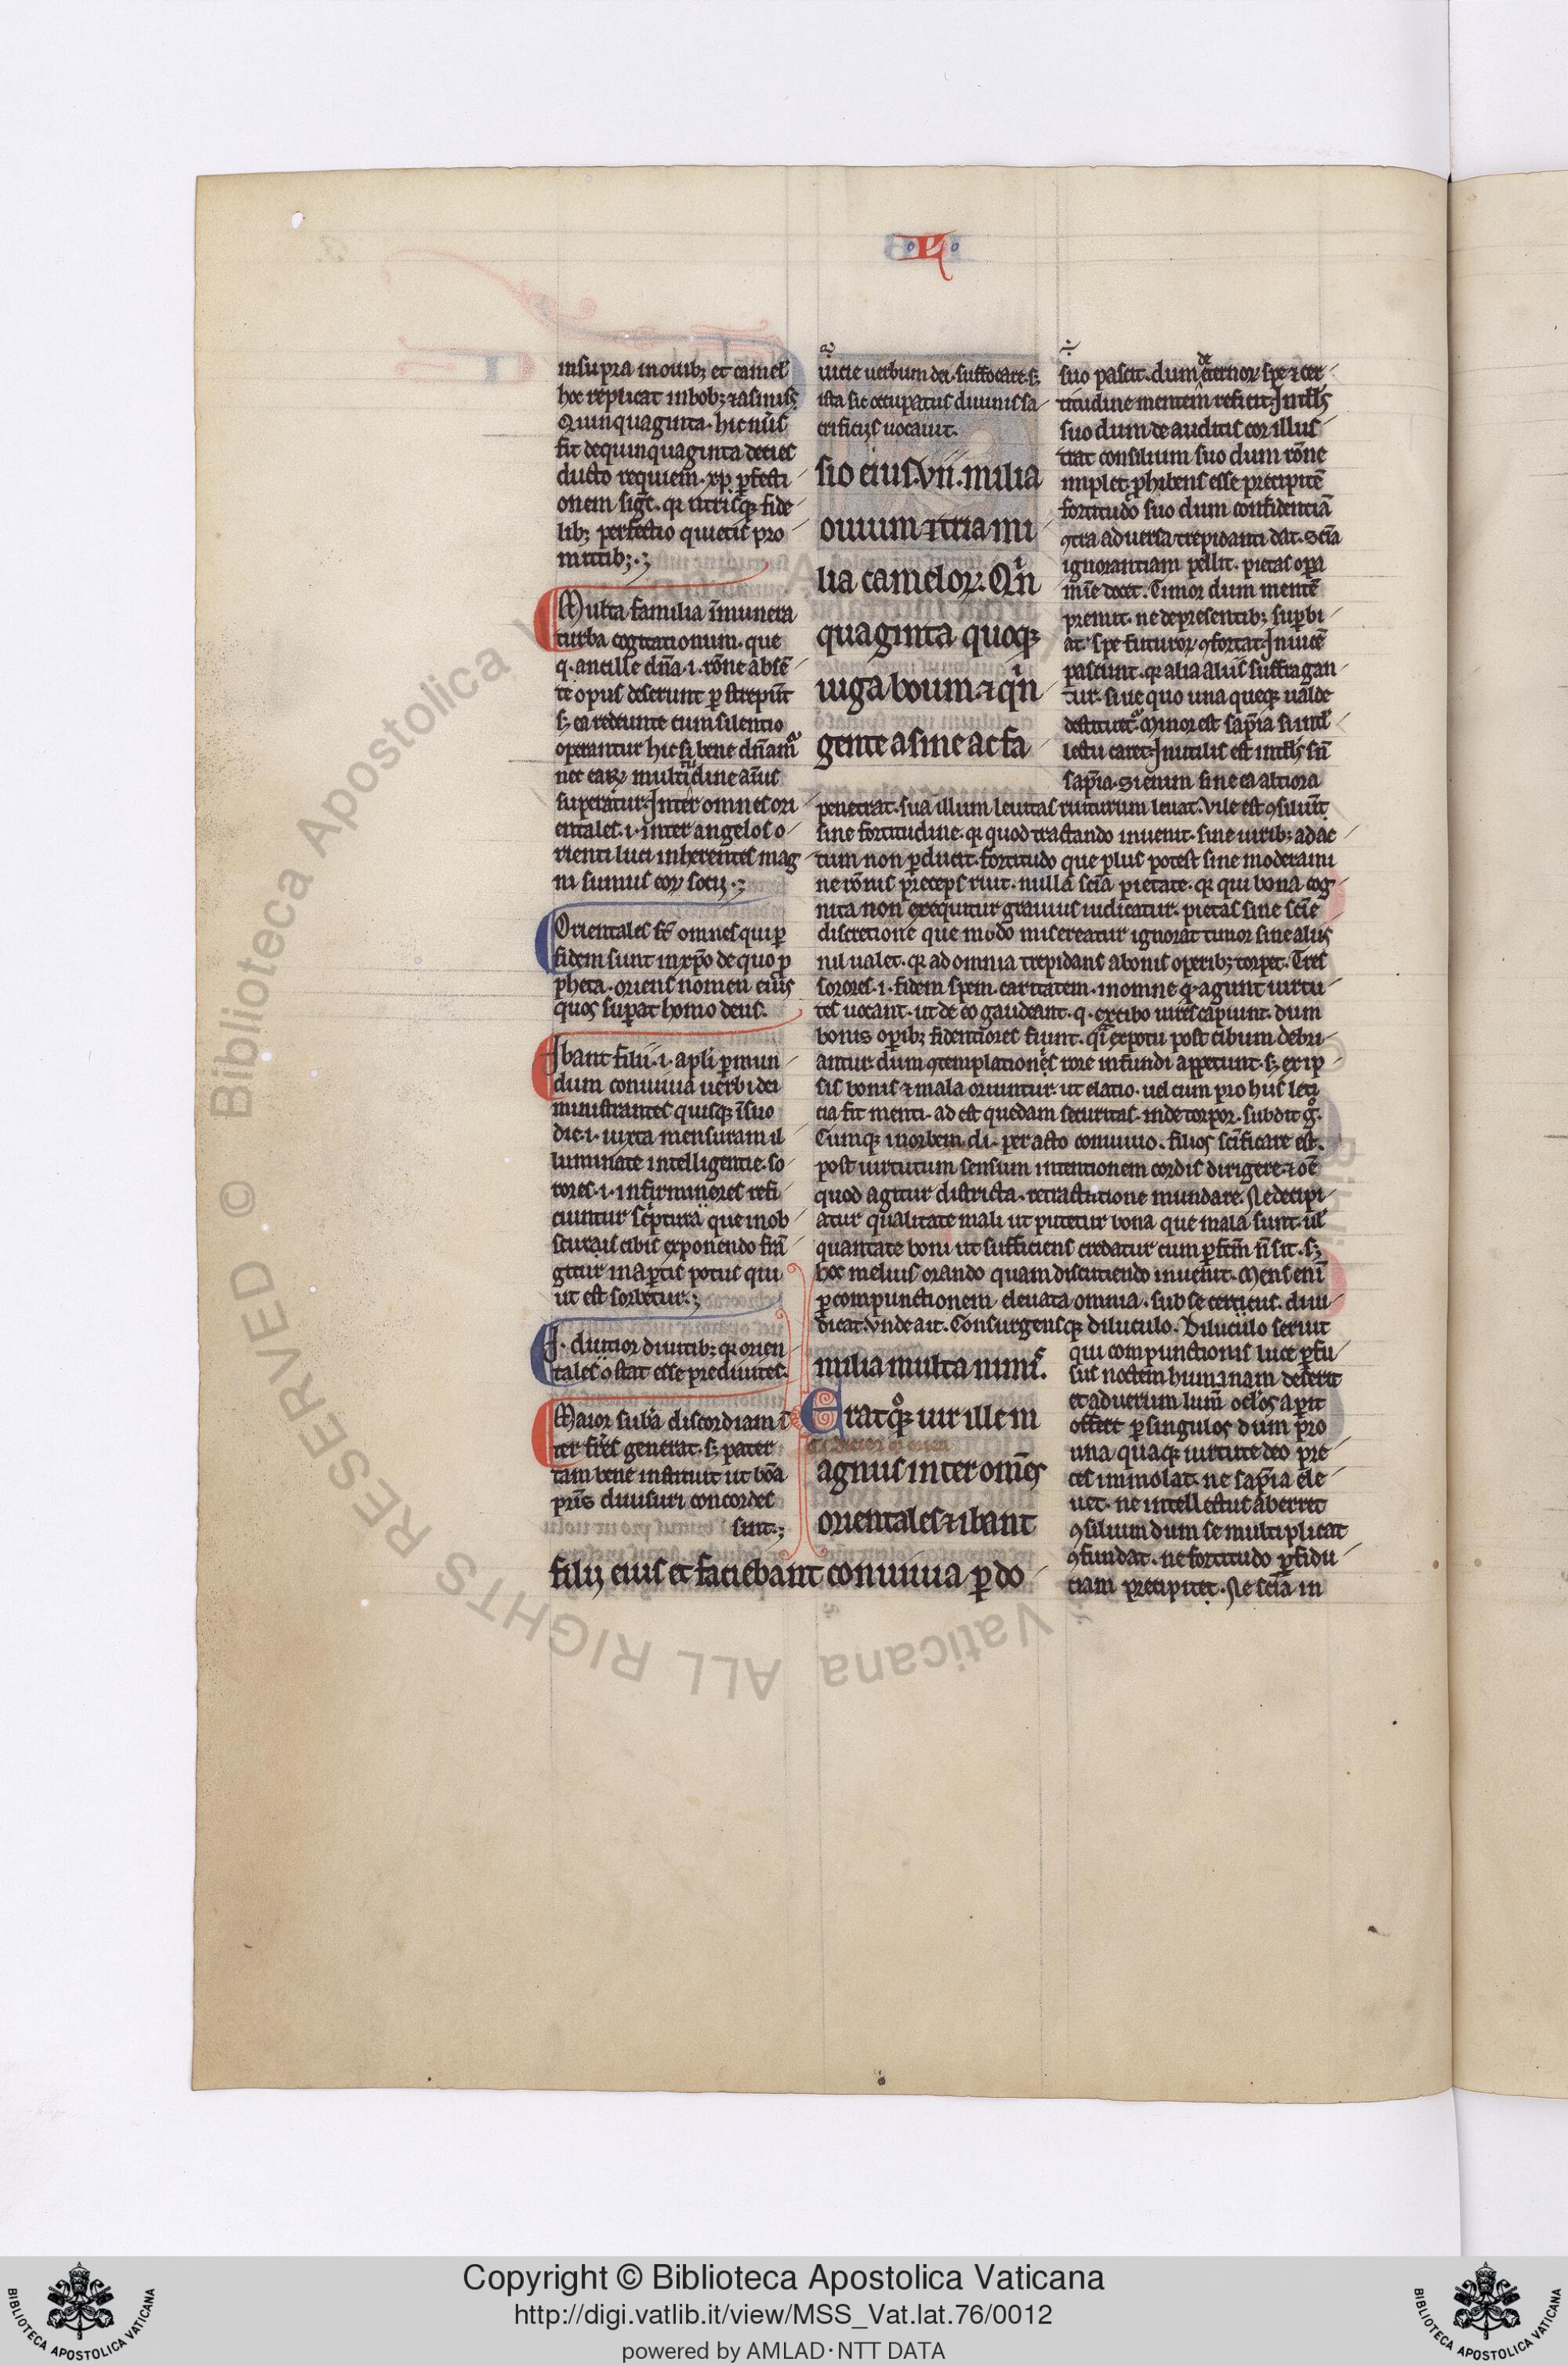 ·L·
insupra in ouib; et camel'
hoc replicat in bob; ⁊ asinis.
Quinquaginta. hic nūs
fit de quinquaginta decies
ducto requiem. xp̄ ꝑfecti
onem sigᵗ. qr utrisq; fide
lib; perfectio quietis pro
mittib;.;
Multa familia īmunera
turba cogitationum. que
q. ancille dn̄a .i. rōne absē
te opus deserunt ꝑ strepūt
s; ea redeunte cum silentio
operantur hic si bene dn̄am
nec earꝝ multitudine aīus
superatur. Inter omnes ori
entales .i. inter angelos o
rienti luci inherentes mag
ni sumus eoꝝ socij.;
Orientales st̄ omnes qui ꝑ
fidem sunt in xp̄o de quo ꝓ
pheta. oriens nomen eius
quos suꝑat homo deus.
Ibant filii .i. apli ꝑ mun
dum conuiuia uerbi dei
ministrantes quisq; ī suo
die .i. iuxta mensuram il
luminate intelligentie. so
rores .i. infirmiores refi
ciuntur scriptura que in ob
scuris cibis exponendo frā
gitur in aꝑtis potus qui
ut est sorbetur.;
I. ditior diuitib; qr orien
tales ꝯstat esse predivites.
Maior sub̄a discordiam ī
ter fr̄es generat. s; pater
tam bene instituit ut bōa
pr̄is diuisuri concordes
sint.;
uicie uerbum dei. suffocare. s;
ista sic occupatus diuinis sa
crificijs uocauit.
sio eius .vii. milia
ouium ⁊ tria mi
lia cameloꝝ. Qⁱn
quaginta quoq;
iuga boum ⁊ qⁱn
gente asine ac fa
milia multa nimis.
Eratq; uir ille m
agnus inter omēs
orientales ⁊ ibant
filij eius et faciebant conuiuia ꝑ do
suo pascit. dum de eternoꝝ spe ⁊ cer
titudine mentem reficit. Intll's
suo dum de auditis cor illus
trat consilium suo dum rōne
implet ꝓhibens esse precipitē
fortitudo suo dum confidentiā
ꝯtra aduersa trepidanti dat. sciā
ignorantiam pellit. pietas oꝑa
mīe docet. Timor dum mentē
premit. ne de presentib; suꝑbi
at. spe futuroꝝ ꝯfortat. Inuicē
pascunt. qr alia aliis suffragan
tur. siue quo una queq; ualde
destituet. Minor est sapīa si intel
lectu caret. Inutilis est intll's sn̄
sapīa. Si enim sine ea altiora
penetrat. sua illum leuitas ruiturum leuat. Vile est ꝯsiliūt
sine fortitudine. qr quod tractando inuenit. sine uirib; ad ac
tum non ꝑducit. fortitudo que plus potest sine moderami
ne rōnis preceps ruit. nulla sciā pietate. qr qui bona cog
nita non exequitur grauius iudicatur. pietas sine scīe
discretione que modo misereatur ignorat timor sine aliis
nil ualet. qr ad omnia trepidans a bonis operib; torpet. Tres
sorores .i. fidem spem caritatem. in omne q. agunt uirtu
tes uocant. ut de eo gaudeant. q. ex cibo uires capiunt. dum
bonis oꝑib; fidentiores fiunt. qͣ ex potu post cibum debri
antur dum ꝯtemplationes rore infundi appetunt. s; ex ip
sis bonis ⁊ mala oriuntur. ut elatio. uel cum pro hiis leti
cia fit menti. ad est quedam securitas. inde torpor. subdit gͦ.
Cumq; in orbem di. peracto conuiuio. filios scīficare est.
post uirtutum sensum intentionem cordis dirigere. ⁊ oē
quod agitur districta. retractatione mundare. Ne decipi
atur qualitate mali ut putetur bona que mala sunt. ul'
quantate boni ut sufficiens credatur cum ꝑfcm̄ n̄ sit. s;
hoc melius orando quam discutiendo inuenit. Mens enī
ꝑ compunctionem eleuata omnia. sub se certius. diiu
dicat. Vnde ait. Consurgensq; diluculo. Diluculo seruit
qui compunctionis luce ꝑfu
sus noctem humanam deserit
et ad uerum lum̄ oclos aꝑit
offert ꝑ singulos dum pro
una quaq; uirtute deo pre
ces immolat. ne sapīa ele
uet. ne intellectus aberret
ꝯsilium dum se multiplicat
ꝯfundat. ne fortitudo ꝑ fidu
ciam precipitet. Ne sciā in
© Biblioteca Apostolica Vaticana ALL RIGHTS RESERVED
Copyright © Biblioteca Apostolica Vaticana
http://digi.vatlib.it/view/MSS_Vat.lat.76/0012
powered by AMLAD·NTT DATA
BIBLIOTECA APOSTOLICA VATICANA
BIBLIOTECA APOSTOLICA VATICANA